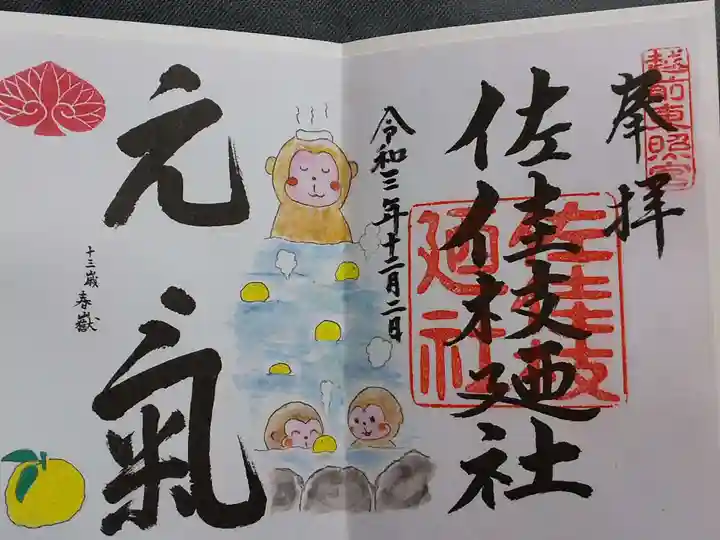 奉拝
越前東照宮
佐佳枝廼社
佐佳枝
廼社
令和三年十二月二日
元氣
十三歳 春嶽